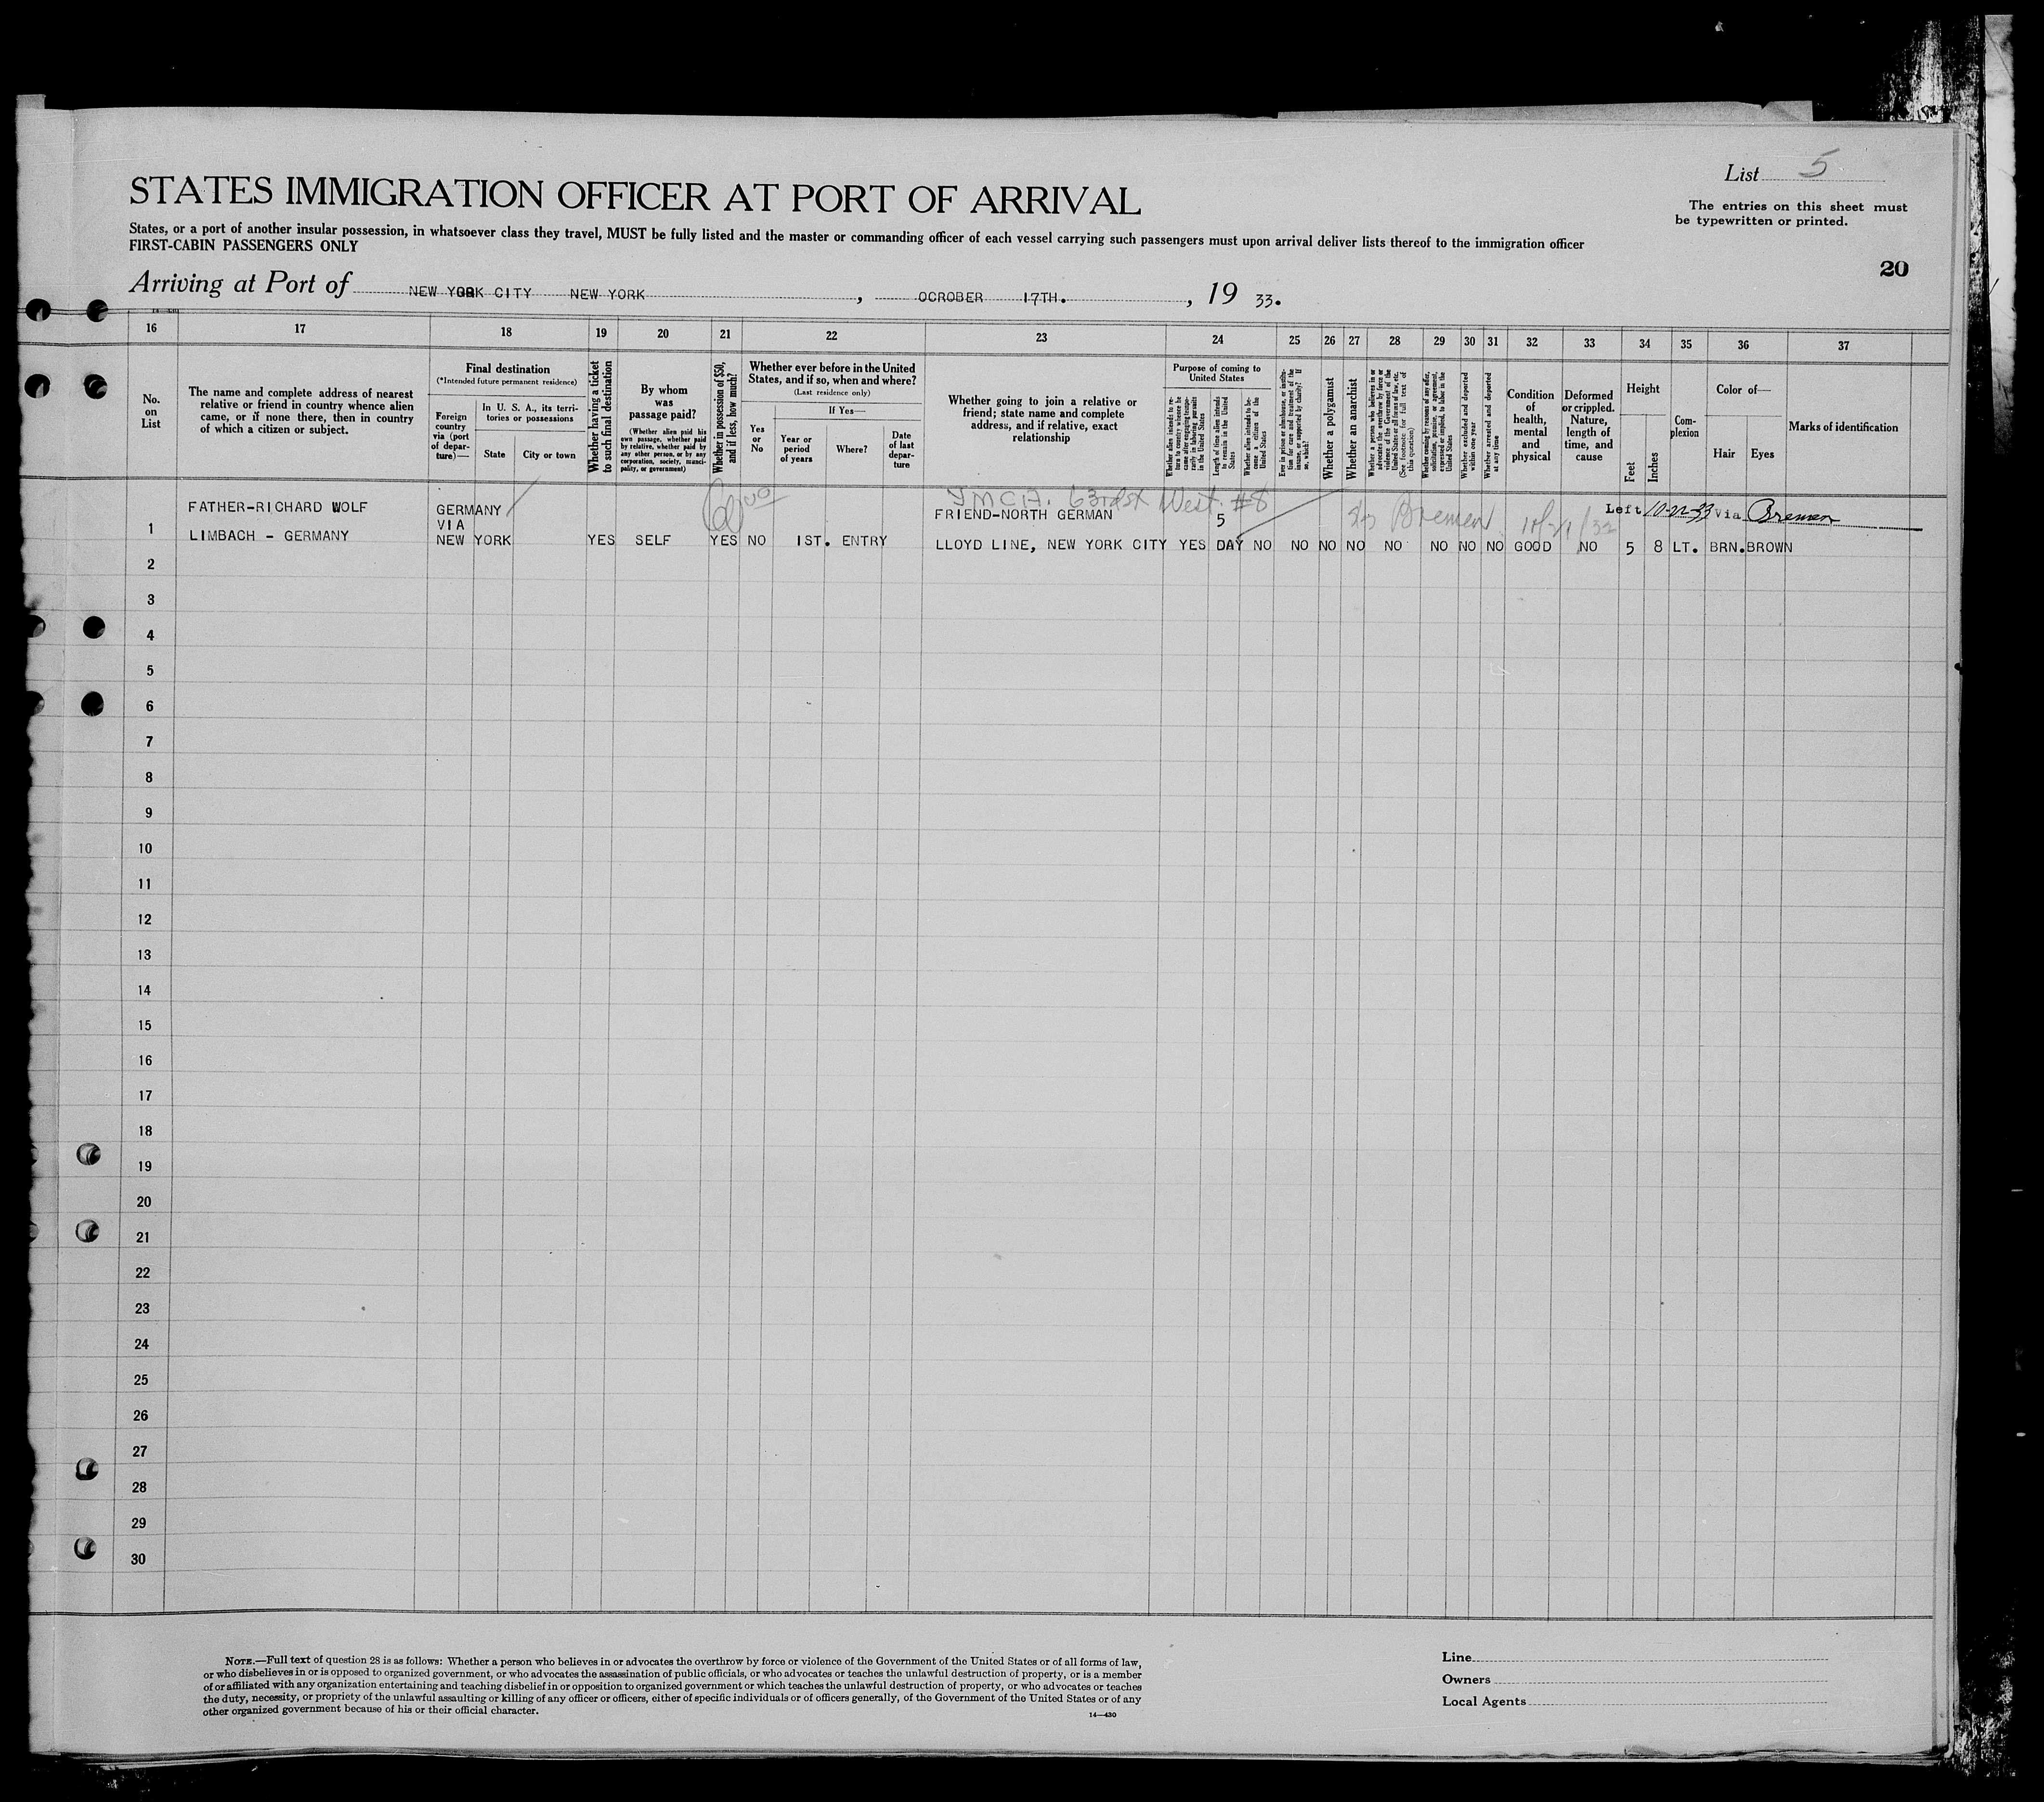 List 5
STATES IMMIGRATION OFFICER AT PORT OF ARRIVAL
The entries on this sheet must
be typewritten or printed.
States, or a port of another insular possession, in whatsoever class they travel, MUST be fully listed and the master or commanding officer of each vessel carrying such passengers must upon arrival deliver lists thereof to the immigration officer
FIRST-CABIN PASSENGERS ONLY
20
Arriving at Port of NEW YORK CITY NEW YORK, OCROBER 17TH., 19 33.
16 17 18 19 20 21 22 23 24 25 26 27 28 29 30 31 32 33 34 35 36 37
No.
on
List
The name and complete address of nearest
relative or friend in country whence alien
came, or if none there, then in country
of which a citizen or subject.
Final destination
(*Intended future permanent residence)
Foreign
country
via (port
of depar-
ture)—
In U. S. A., its terri-
tories or possessions
State
City or town
Whether having a ticket
to such final destination
By whom
was
passage paid?
(Whether alien paid his
own passage, whether paid
by relative, whether paid by
any other person, or by any
corporation, society, munici-
pality, or government)
Whether in possession of $50,
and if less, how much?
Whether ever before in the United
States, and if so, when and where?
(Last residence only)
Yes
or
No
If Yes—
Year or
period
of years
Where?
Date
of last
depar-
ture
Whether going to join a relative or
friend; state name and complete
address, and if relative, exact
relationship
Purpose of coming to
United States
Whether alien intends to re-
turn to country whence he
came after engaging tempo-
rarily in laboring pursuits
in the United States
Length of time alien intends
to remain in the United
States
Whether alien intends to be-
come a citizen of the
United States
Ever in prison or almshouse, or institu-
tion for care and treatment of the
insane, or supported by charity? If
so, which?
Whether a polygamist
Whether an anarchist
Whether a person who believes in or
advocates the overthrow by force or
violence of the Government of the
United States or all forms of law, etc.
(See footnote for full text of
this question)
Whether coming by reasons of any offer,
solicitation, promise, or agreement,
expressed or implied, to labor in the
United States
Whether excluded and deported
within one year
Whether arrested and deported
at any time
Condition
of
health,
mental
and
physical
Deformed
or crippled.
Nature,
length of
time, and
cause
Height
Feet
Inches
Com-
plexion
Color of—
Hair
Eyes
Marks of identification
Y M C A. 63rd st West. #8
FATHER-RICHARD WOLF GERMANY FRIEND-NORTH GERMAN 5 Bremen Left 10-22-33 Via Bremen
1 VIA
LIMBACH - GERMANY NEW YORK YES SELF YES NO 1ST. ENTRY LLOYD LINE, NEW YORK CITY YES DAY NO NO NO NO NO NO NO NO GOOD NO 5 8 LT. BRN. BROWN
2
3
4
5
6
7
8
9
10
11
12
13
14
15
16
17
18
19
20
21
22
23
24
25
26
27
28
29
30
NOTE.—Full text of question 28 is as follows: Whether a person who believes in or advocates the overthrow by force or violence of the Government of the United States or of all forms of law,
or who disbelieves in or is opposed to organized government, or who advocates the assassination of public officials, or who advocates or teaches the unlawful destruction of property, or is a member
of or affiliated with any organization entertaining and teaching disbelief in or opposition to organized government or which teaches the unlawful destruction of property, or who advocates or teaches
the duty, necessity, or propriety of the unlawful assaulting or killing of any officer or officers, either of specific individuals or of officers generally, of the Government of the United States or of any
other organized government because of his or their official character.
14—430
Line
Owners
Local Agents